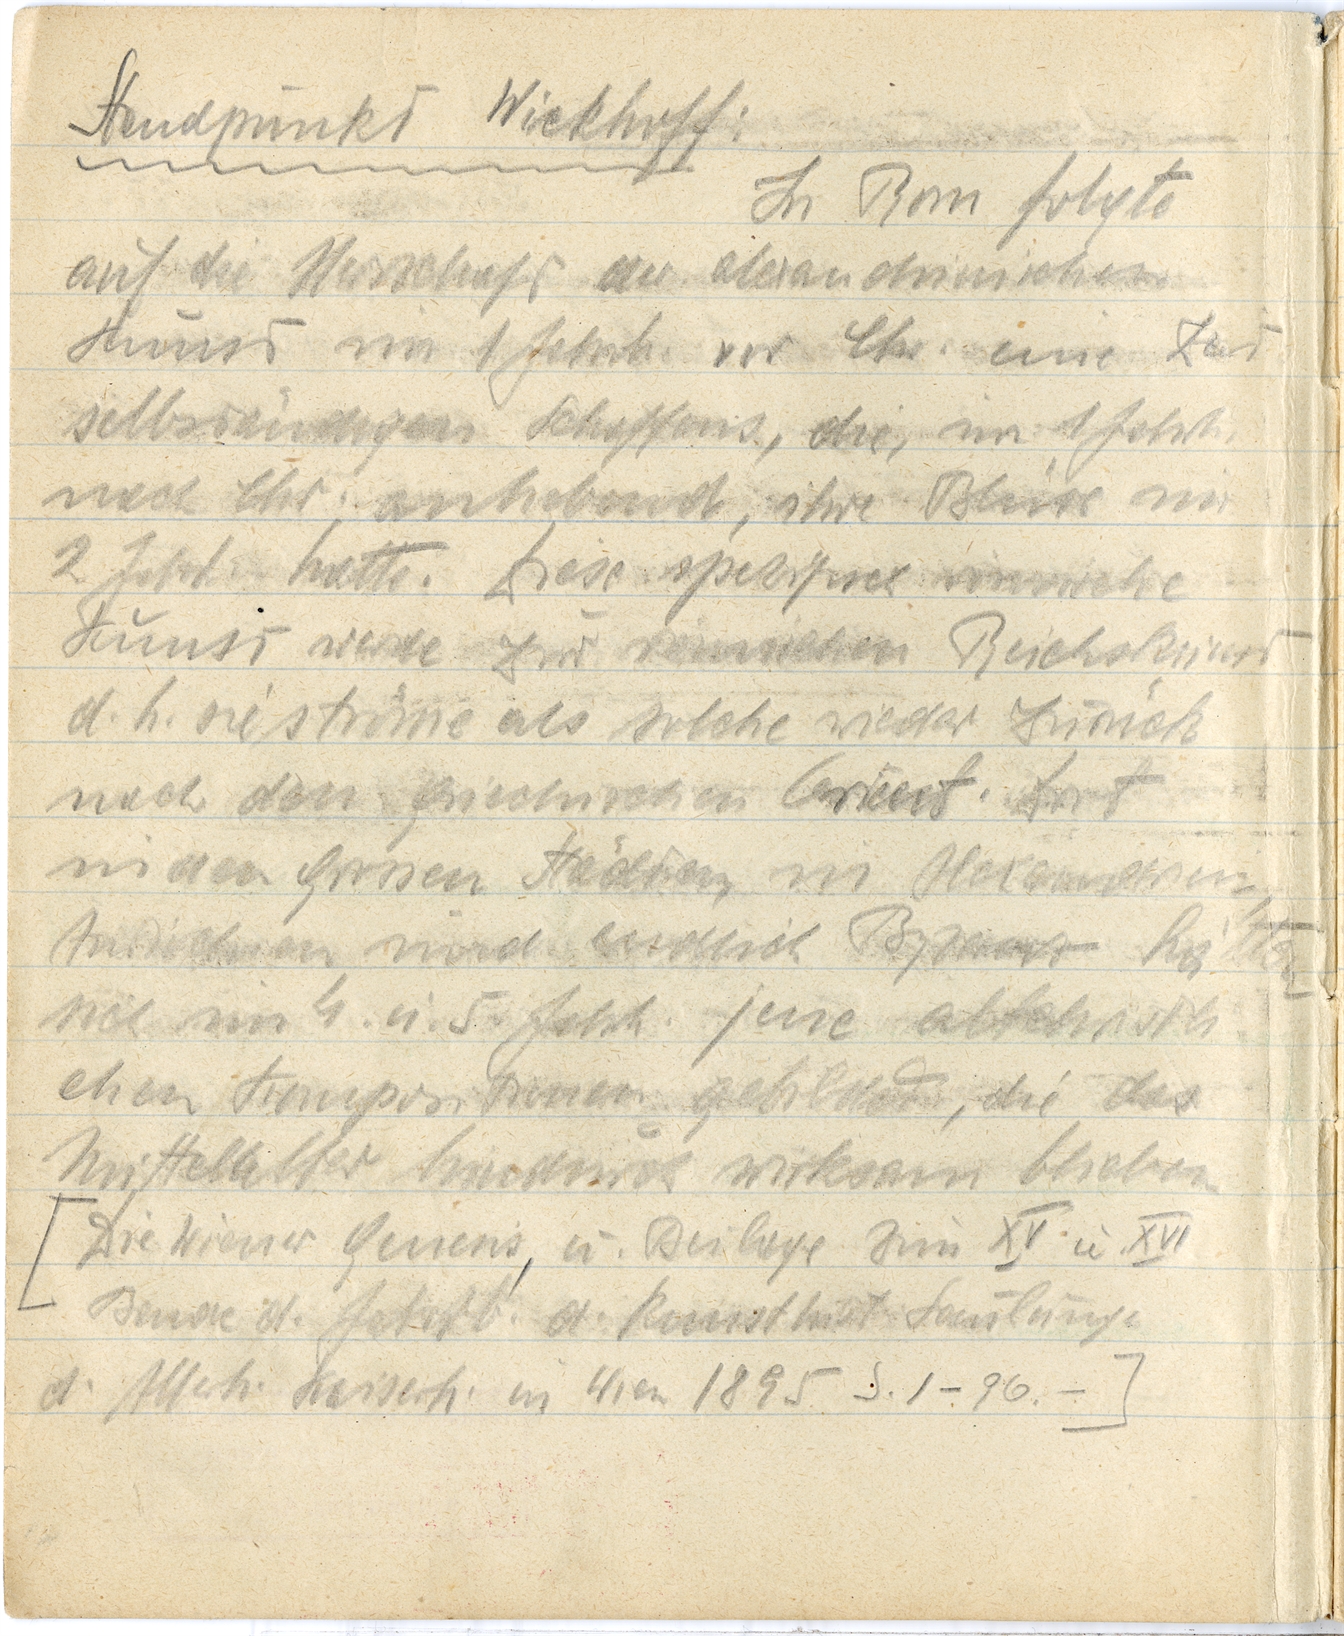 Standpunkt Wickhoff:
In Rom folgte
auf die Herrschaft der alexandrinischen
Kunst im 1 Jahrh. vor Chr. eine Zeit
selbständigen Schaffens, die, im 1 Jahrh.
nach Chr. anhebend, ihre Blüte im
2 Jahrh. hatte. Diese spezifisch römische
Kunst werde zur römischen Reichskunst
d. h. sie ströme als solche wieder zurück
nach dem griechischen Orient. Dort
in den Grossen Städten, in Alexandrien,
Antiochien und endlich Byzanz hätten
sich im 4. u. 5. Jahrh. jene altchristli
chen Kompositionen gebildet, die das
Mittelalter hindurch wirksam blieben
[Die Wiener Genesis, u. Beilage zum XV. u. XVI
Bande d. Jahrb. d. Kunsthist. Samlunge
d. Allerh. Kaiserh. in Wien 1895 S. 1-96. -]